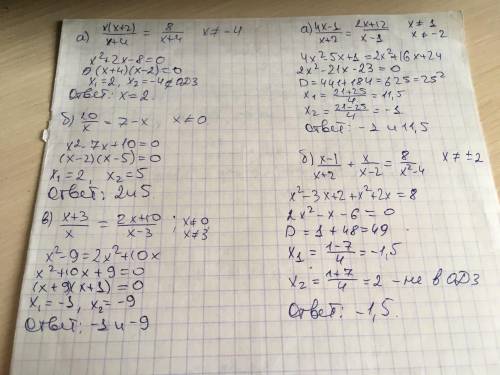 а) x(x+2)/x+4 = 8/x+4 x≠-4
x²+2x-8=0
(x+4)(x-2)=0
x₁=2, x₂=-4∉ОДЗ
Ответ: x=2
б) 10/x = 7-x, x≠0
x²-7x+10=0
(x-2)(x-5)=0
x₁=2, x₂=5
Ответ: 2 и 5
в) x+3/x = 2x+10/x-3 ; x≠0 x≠3
x²-9=2x²+10x
x²+10x+9=0
(x+9)(x+1)=0
x₁=-1, x₂=-9
Ответ: -1 и -9
а) 4x-1/x+2 = 2x+12/x-1 x≠1 x≠-2
4x²-5x+1=2x²+16x+24
2x²-21x-23=0
D=441+184=625=25²
x₁=21+25/4=11,5
x₂=21-25/4=-1
Ответ: -1 и 11,5
б) x-1/x+2 + x/x-2 = 8/x²-4 x≠±2
x²-3x+2+x²+2x=8
2x²-x-6=0
D=1+48=49
x₁=1-7/4=-1,5
x₂=1+7/4=2 - не в ОДЗ
Ответ: -1,5.